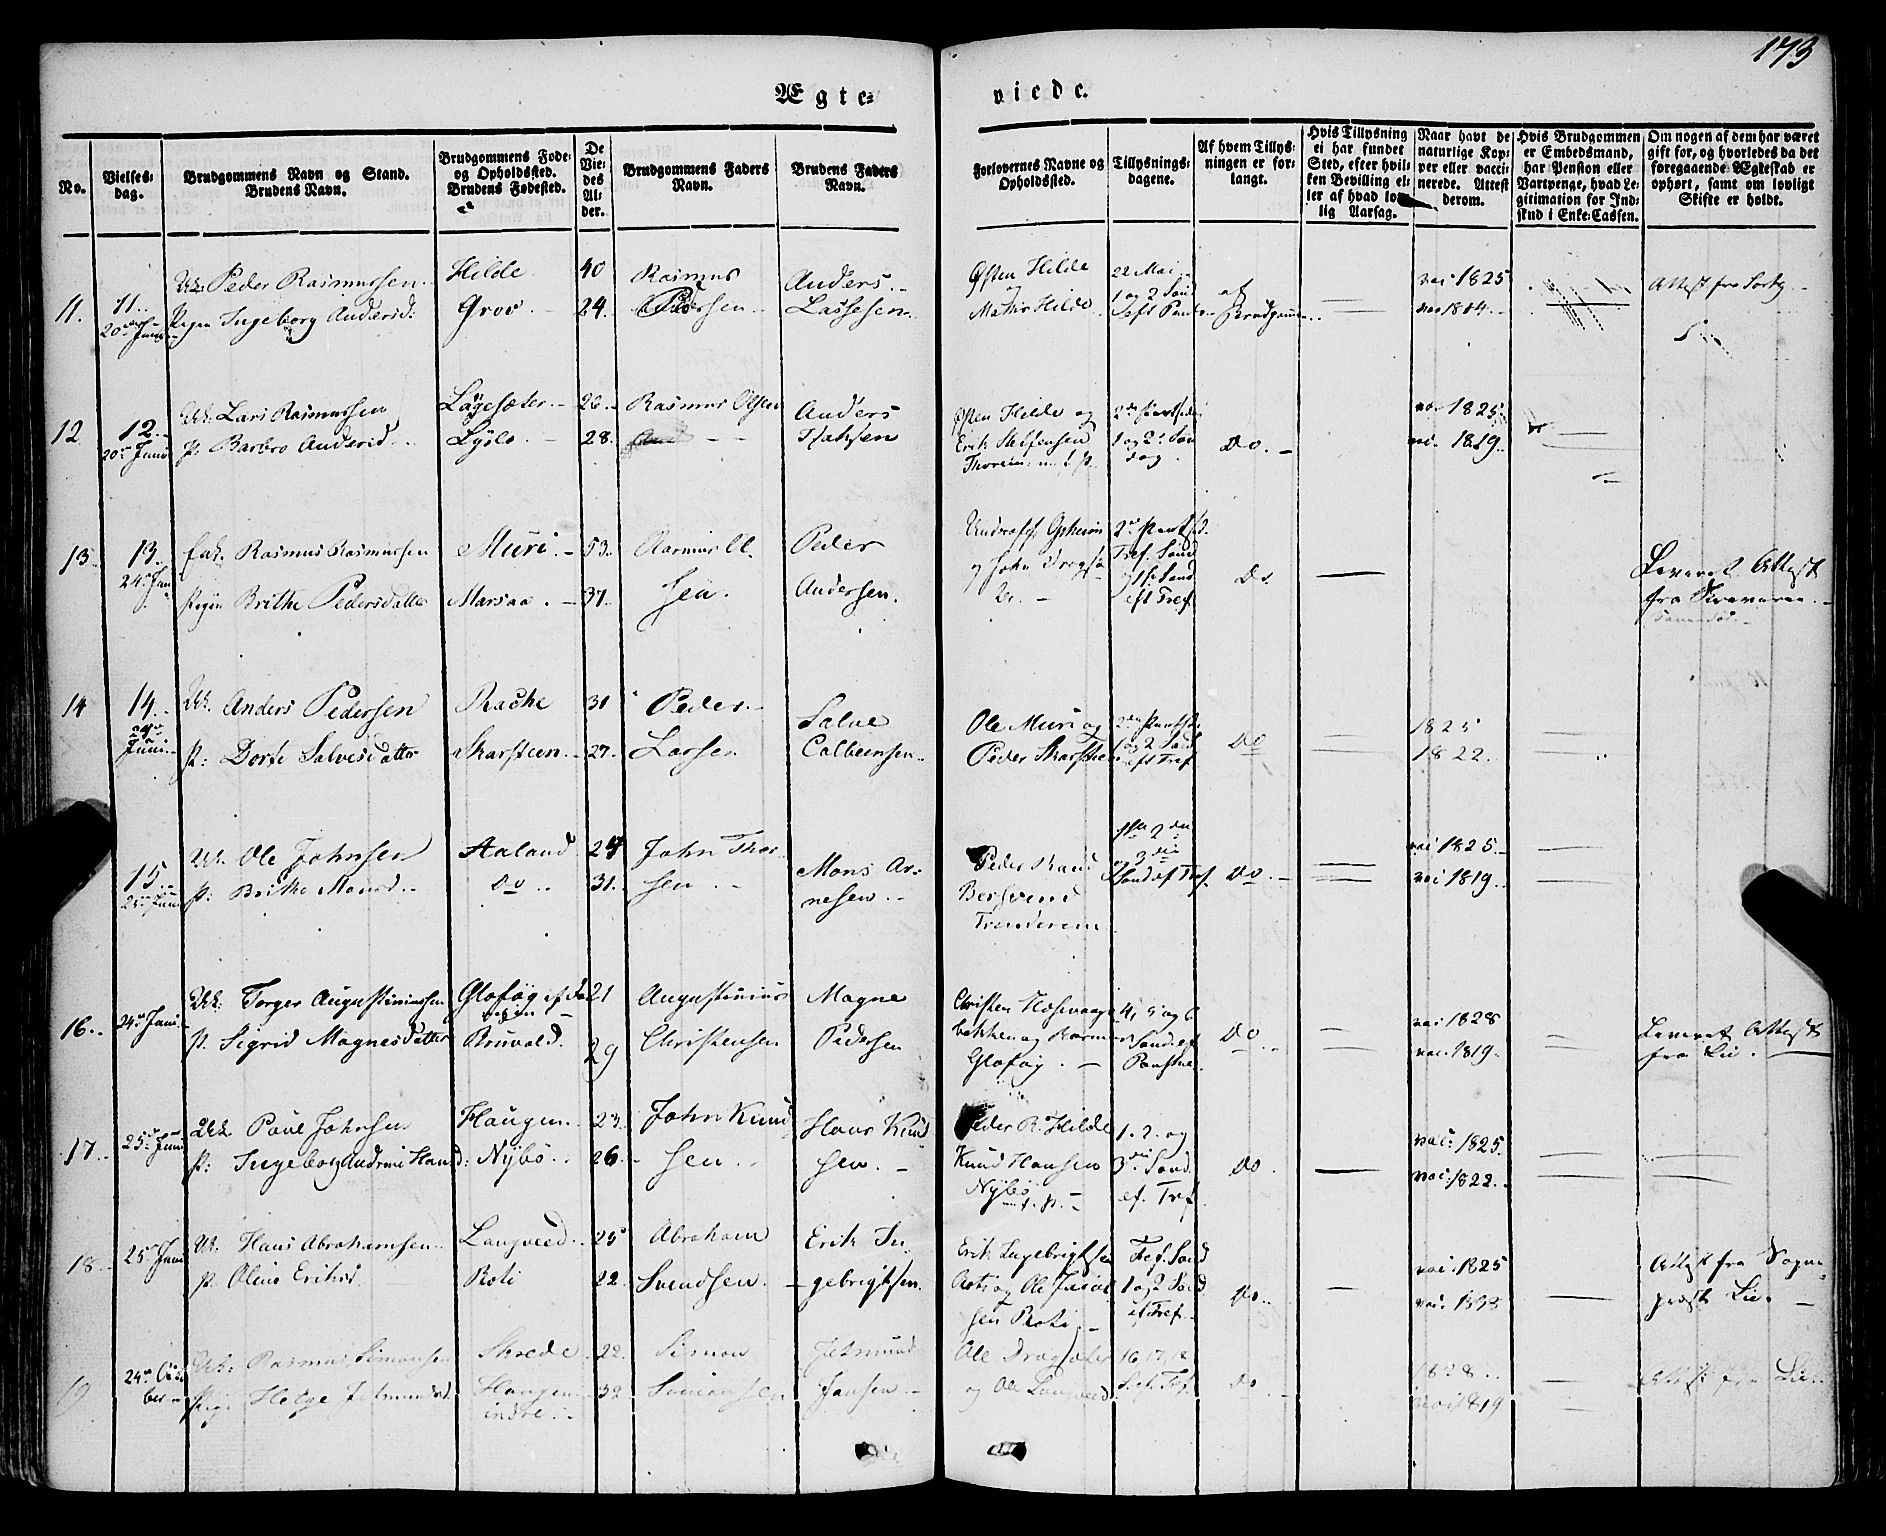 173
Ægte=
viede.
No.
Vielses=
dag.
Brudgommens Navn og Stand.
Brudens Navn.
Brudgommens Føde=
og Opholdssted.
Brudens Fødested.
De
Vie=
des
Al=
der.
Brudgommens Faders
Navn.
Brudens Faders
Navn.
Forlovernes Navne og
Opholdssted.
Tillysnings=
dagene.
Af hvem Tillys=
ningen er for=
langt.
Hvis Tillysning
ei har fundet
Sted, efter hvil=
ken Bevilling el=
ler af hvad lov=
lig Aarsag.
Naar havt de
naturlige Kop=
per eller vacci=
nerede. Attest
derom.
Hvis Brudgommen
er Embedsmand,
har Pension eller
Vartpenge, hvad Le=
gitimation for Ind=
skud i Enke=Cassen.
Om nogen af dem har været
gift før, og hvorledes da det
foregaaende Ægtestad er
ophørt, samt om lovligt
Skifte er holdt.
11. 11.
20de Juni
Peder Rasmussen
Pigen Ingeborg Andersd.
Hilde
Grov
40
24
Rasmus
Pedersen
Anders
Lassesen
Østen Hilde
og
Hilde
22 Mai
1 og 2 Sønd
eft Pindse
af
Brudgommen
vac 1825
vac 1814
Attest fra
12 12.
20de Juni
Uk. Lars Rasmussen
P: Barbro Andersd
Løgesæter
Lyslo
26
28
Rasmus Olsen
Anders
Østen Hilde og
Erik Steffensen
1 og 2 Søn
dag
Do.
1825
1819
13. 13.
24de Juni
Enk. Rasmus Rasmussen
Pigen Brithe Pedersdatter
Muri
Marsaa
53.
37.
Rasmus Ol
sen.
Peder
Andersen.
og John
2den Pintsed.
Tref. Sønd
og 1ste Sønd
eft Tref
Do.
Leveret Attest
fra
14 14.
24de
Juni
Uk. Anders Pedersen
P: Dorte Salvesdatter
Rache
Skarsteen
31
27.
Peder
Larsen
Salve
Colbeensen
Ole Muri og
Peder Skarsteen
2den Pintsed
1 og 2 Sønd
eft Tref
Do
1825
1822.
15
24de Juni
Uk. Ole Johnsen
P: Brithe Monsd
Aaland
Do
24
31.
John Thor
sen
Mons Ar=
nesen
Peder Rand
Bersvend
1ste 2den
og 3die
Sønd. ef Tref.
Do.
vac 1825
vac 1819
16. 24de Juni
Uk. Torger Augustinussen
P. Sigrid Magnesdatter
Gloføg
Bruvold.
21
29
Augustinus
Christensen
Magne
Pedersen
Christen
bakken og
Gloføg
4, 5 og 6
Sønd. ef
Paaske
Do
vac. 1828
vac. 1819
Leveret Attest
fra Lie.
17. 25de Juni
Uk. Paul Johnsen
P: Ingeborg Andrine Hansd:
Haugen
Nybø
23
26
John Knud
sen
Hans Knud
sen.
Peder R. Hilde
Knud Hansen
Nybø
1. 2. og
3die Sønd.
ef. Tref
Do
vac: 1825
vac: 1822
18. 25de Juni
Uk. Hans Abrahamsen
P. Oline Eriksd
Langveed
Roti
25
22
Abraham
Svendsen
Erik In
gebrigtsen
Erik Ingebrigtsen
Roti og Ole
sen Roti
Tref. Sønd
1 og 2 Sønd
ef Tref
Do.
vac: 1825
vac. 1838
Attest fra Sogne
præst Lie.
19 24de Octo
ber
Uk: Rasmus Simonsen
Pige Helge Jetmundsd
Skrede
Haugen
indre
22
32
Simon
Simonsen
Jetmund
Jansen
Ole Dragsæter
og Ole Langveed
16, 17, 18
Sef. Tref
Do
1828
vac: 1819
Attest fra Lie.